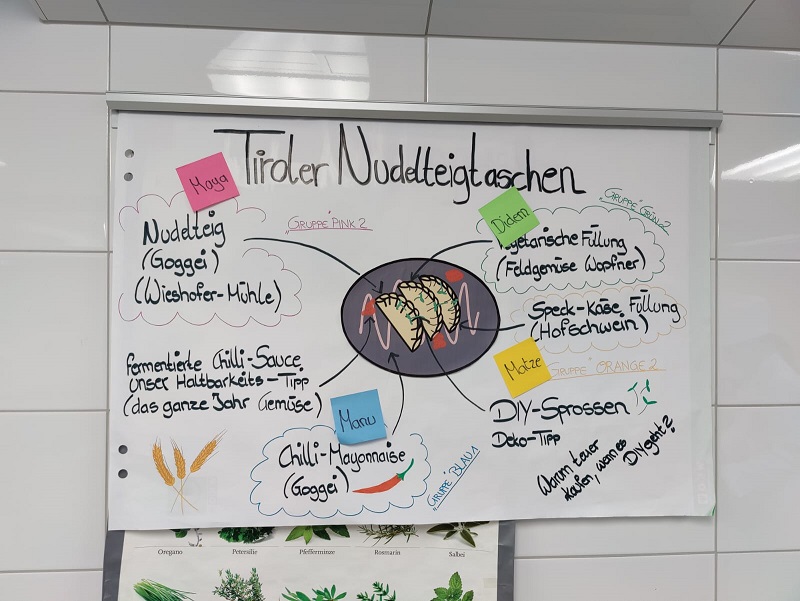 Tiroler Nudelteigtaschen
Maya
Nudelteig
(Goggei)
(Wieshofer-Mühle)
"GRUPPE" PINK 2
Didem
Füllung
(Feldgemüse Wopfner)
"GRUPPE" GRÜN 2
Speck-Käse Füllung
(Hofschwein)
Matze
GRUPPE" ORANGE 2
fermentierte Chilli-Sauce
unser Haltbarkeits-Tipp
(das ganze Jahr Gemüse)
Manu
Chilli-Mayonnaise
(Goggei)
"GRUPPE" BLAU 1
DIY-Sprossen
Deko-Tipp
Warum teuer
kaufen, wenn es
DIY geht?
Oregano
Petersilie
Pfefferminze
Rosmarin
Salbei